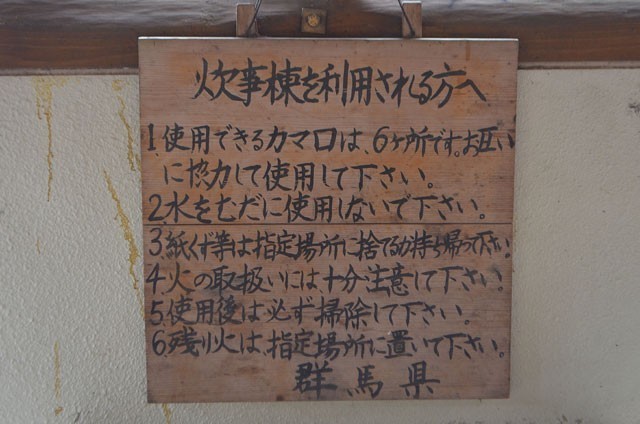 炊事棟を利用される方へ
1.使用できるカマ口は、6ヶ所です。お互い
に協力して使用して下さい。
2.水をむだに使用しないで下さい。
3.紙くず等は指定場所に捨てるか持ち帰って下さい。
4.火の取扱いには十分注意して下さい。
5.使用後は必ず掃除して下さい。
6.残り火は、指定場所に置いて下さい。
群馬県